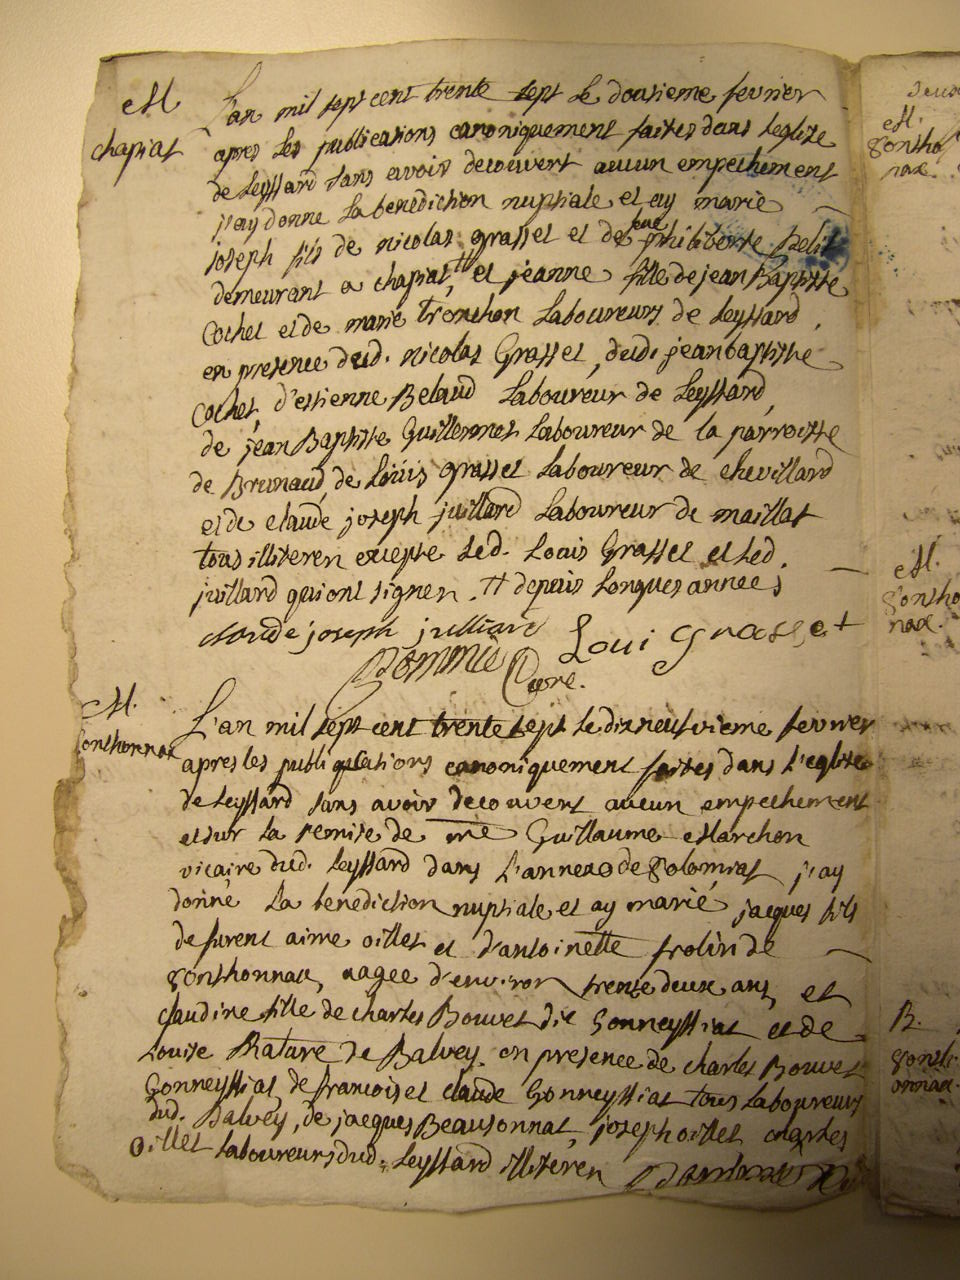 M
chapiat
L'an mil sept cent trente sept Le dousieme fevrier
apres Les publications canoniquement faites dans Leglize
de Leyssard sans avoir decouvert aucun empechement
j'ay donne La benediction nuptiale et ay marie
joseph fils de nicolas grasset et de feue philiberte Belit
demeurant a chapiat, tt et jeanne fille de jean Baptiste
Cochet et de marie tronchon Laboureurs de Leyssard,
en presence dud. nicolas Grasset, dud. jeanbaptiste
Cochet, d'estienne Belaud Laboureur de Leyssard,
de jean Baptiste Guillermet Laboureur de la parroisse
de Brunaud, de Loüis grasset Laboureur de chevillard
et de claude joseph juillard Laboureur de maillat
tous illiteren excepte Led. Louis Grasset et Led.
juillard qui ont signer. tt depuis Longues années
claude joseph julliard Loui Grasset
Curé.
M.
Gonthonnax
L'an mil sept cent trente sept Le dixneufvieme fevrier
apres les publications canoniquement faites dans L'eglize
de Leyssard sans avoir decouvert aucun empechement
et sur La remise de me Guillaume Marchon
vicaire dud. Leyssard dans L'annexe de Solomiat j'ay
donné La benediction nuptiale et ay marié jacques fils
de furent aime oillet et d'antoinette frolin de
gonthonnax, aagee d'environ trente deux ans, et
claudine fille de charles Bouvet dit Gonneyssiat et de
Louise Rature de Balvey. en presence de charles Bouvet
Gonneyssiat, de francois et claude Gonneyssiat tous Laboureurs
dud. Balvey, de jacques Beausonnat, joseph oillet charles
oillet Laboureurs dud. Leyssard illiteren
M.
gontho
nax.
M.
gontho
nax.
B.
gonth
onnax.